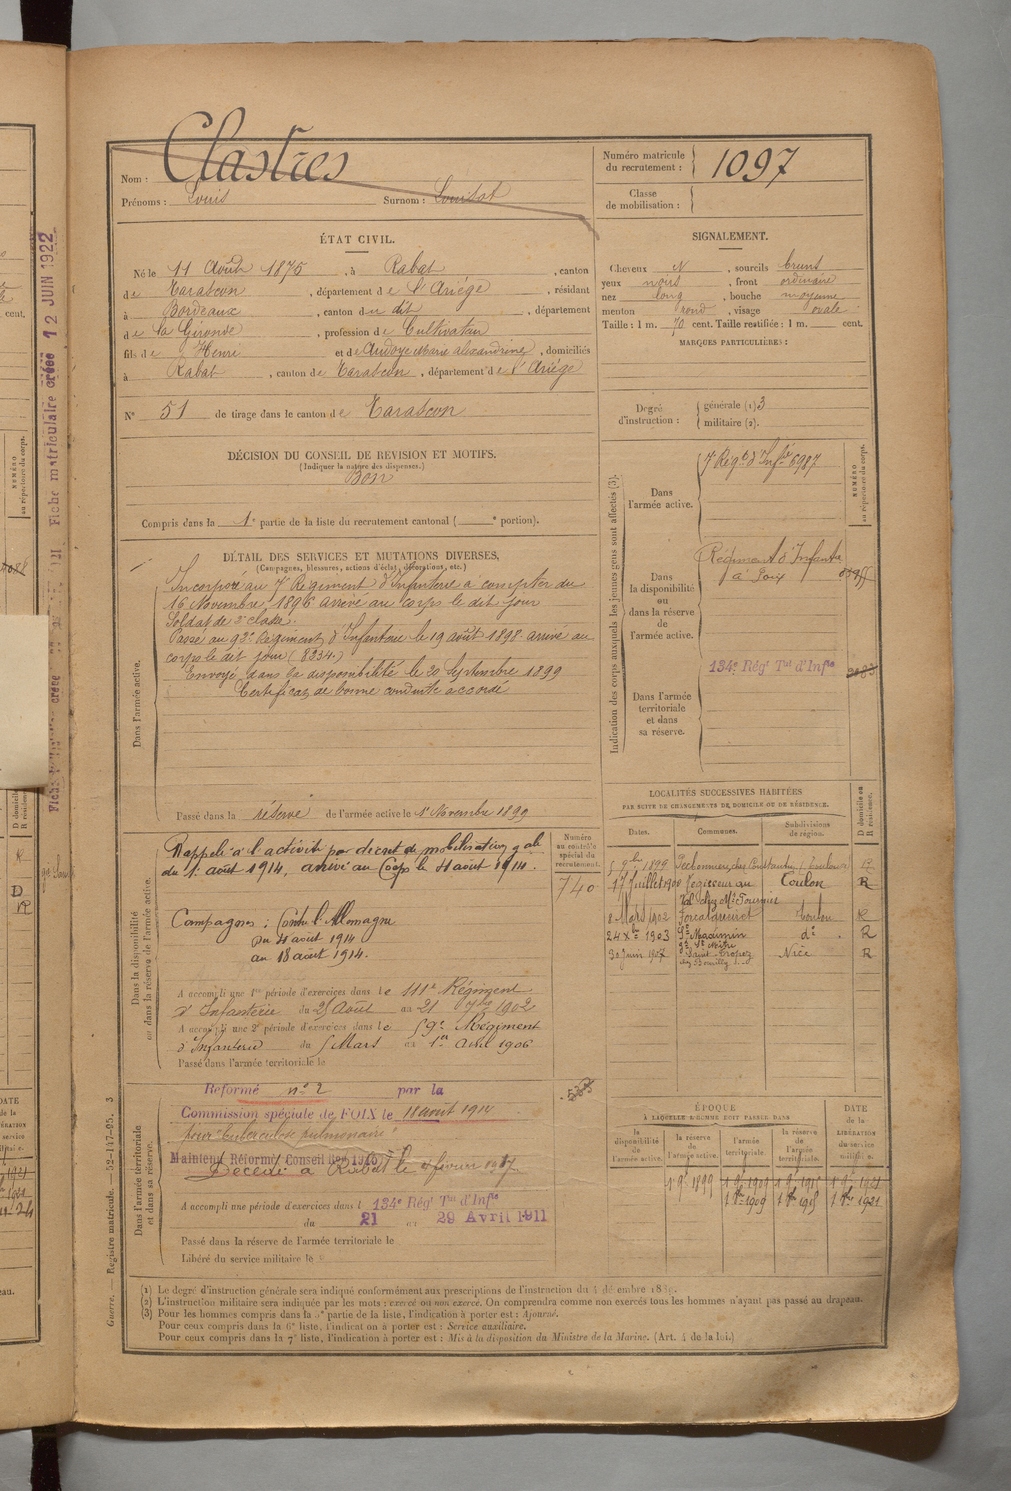 Clastres
Nom :
Prénoms : Louis Surnom : Louisot
Numéro matricule
du recrutement : 1097
Classe
de mobilisation :
ÉTAT CIVIL.
Né le 11 Août 1875, à Rabat, canton
de Tarascon, département de l'Ariège, résidant
à Bordeaux, canton du dit, département
de la Gironde, profession de Cultivateur
fils de Henri et de Audoye Marie Alexandrine, domiciliés
à Rabat, canton de Tarascon, département de l'Ariège
N° 51 de tirage dans le canton de Tarascon
SIGNALEMENT.
Cheveux N, sourcils bruns
yeux noirs, front ordinaire
nez long, bouche moyenne
menton rond, visage ovale
Taille : 1 m. 70 cent. Taille rectifiée : 1 m. cent.
MARQUES PARTICULIÈRES :
Degré
d'instruction :
générale (1) 3
militaire (2).
DÉCISION DU CONSEIL DE REVISION ET MOTIFS.
(Indiquer la nature des dispenses.)
Bon
Compris dans la 1e partie de la liste du recrutement cantonal ( e portion).
DÉTAIL DES SERVICES ET MUTATIONS DIVERSES.
(Campagnes, blessures, actions d'éclat, décorations, etc.)
Dans l'armée active.
Incorporé au 7e Régiment d'Infanterie à compter du
16 Novembre 1896 arrivé au corps le dit jour
Soldat de 2e classe.
Passé au 93e Régiment d'Infanterie le 19 août 1898 arrivé au
corps le dit jour (8334.)
Envoyé dans la disponibilité le 20 Septembre 1899
Certificat de bonne conduite accordé
Passé dans la réserve de l'armée active le 1er Novembre 1899
Indication des corps auxquels les jeunes gens sont affectés (3).
NUMÉRO
au répertoire du corps.
Dans
l'armée active.
7 Régt d'Infie 6987
Dans
la disponibilité
ou
dans la réserve
de
l'armée active.
Régiment d'Infanterie
à Foix
134e Régt Tal d'Infie
Dans l'armée
territoriale
et dans
sa réserve.
Dans la disponibilité
ou dans la réserve de l'armée active.
Numéro
au contrôle
spécial du
recrutement.
740
Rappelé à l'activité par décret de mobilisation gale
du 1er août 1914, arrivé au Corps le 4 août 1914.
Campagnes : Contre l'Allemagne
du 4 août 1914
au 18 août 1914.
A accompli une 1re période d'exercices dans le 111e Régiment
d'Infanterie du 25 Août au 21 7bre 1902
A accompli une 2e période d'exercices dans le 59e Régiment
d'Infanterie du 5 Mars au 1er Avril 1906
Passé dans l'armée territoriale le
LOCALITÉS SUCCESSIVES HABITÉES
PAR SUITE DE CHANGEMENTS DE DOMICILE OU DE RÉSIDENCE.
Dates. Communes. Subdivisions
de région. D domicile ou
R résidence.
5 9bre 1899 R
17 Juillet 1900 Régisseur au Toulon R
Val chez Mr Fournier
2 Mars 1902 Forcalqueiret Toulon R
24 Xbre 1903 St Maximin do R
30 Juin 1907 Saint-Tropez Nice R
Dans l'armée territoriale
et dans sa réserve.
Réformé no 2 par la
Commission spéciale de FOIX le 18 août 1914
pour tuberculose pulmonaire
Maintenu Réformé Conseil Rev. 1915
Décédé à Rabat le février 1917
A accompli une période d'exercices dans l 134e Régt Tal d'Infie
du 21 au 29 Avril 1911
Passé dans la réserve de l'armée territoriale le
Libéré du service militaire le
ÉPOQUE
À LAQUELLE L'HOMME DOIT PASSER DANS
DATE
de la
LIBÉRATION
du service
militaire.
la
disponibilité
de l'armée active. la réserve
de
l'armée active. l'armée
territoriale. la réserve
de
l'armée
territoriale.
1 9bre 1899 1 9bre 1909 1 9bre 1915 1 9bre 1921
(1) Le degré d'instruction générale sera indiqué conformément aux prescriptions de l'instruction du 4 décembre 1889.
(2) L'instruction militaire sera indiquée par les mots : exercé ou non exercé. On comprendra comme non exercés tous les hommes n'ayant pas passé au drapeau.
(3) Pour les hommes compris dans la 5e partie de la liste, l'indication à porter est : Ajourné.
Pour ceux compris dans la 6e liste, l'indication à porter est : Service auxiliaire.
Pour ceux compris dans la 7e liste, l'indication à porter est : Mis à la disposition du Ministre de la Marine. (Art. 4 de la loi.)
Guerre. — Registre matricule. — 52-147-95. 3
Fiche matriculaire créée 12 JUIN 1922